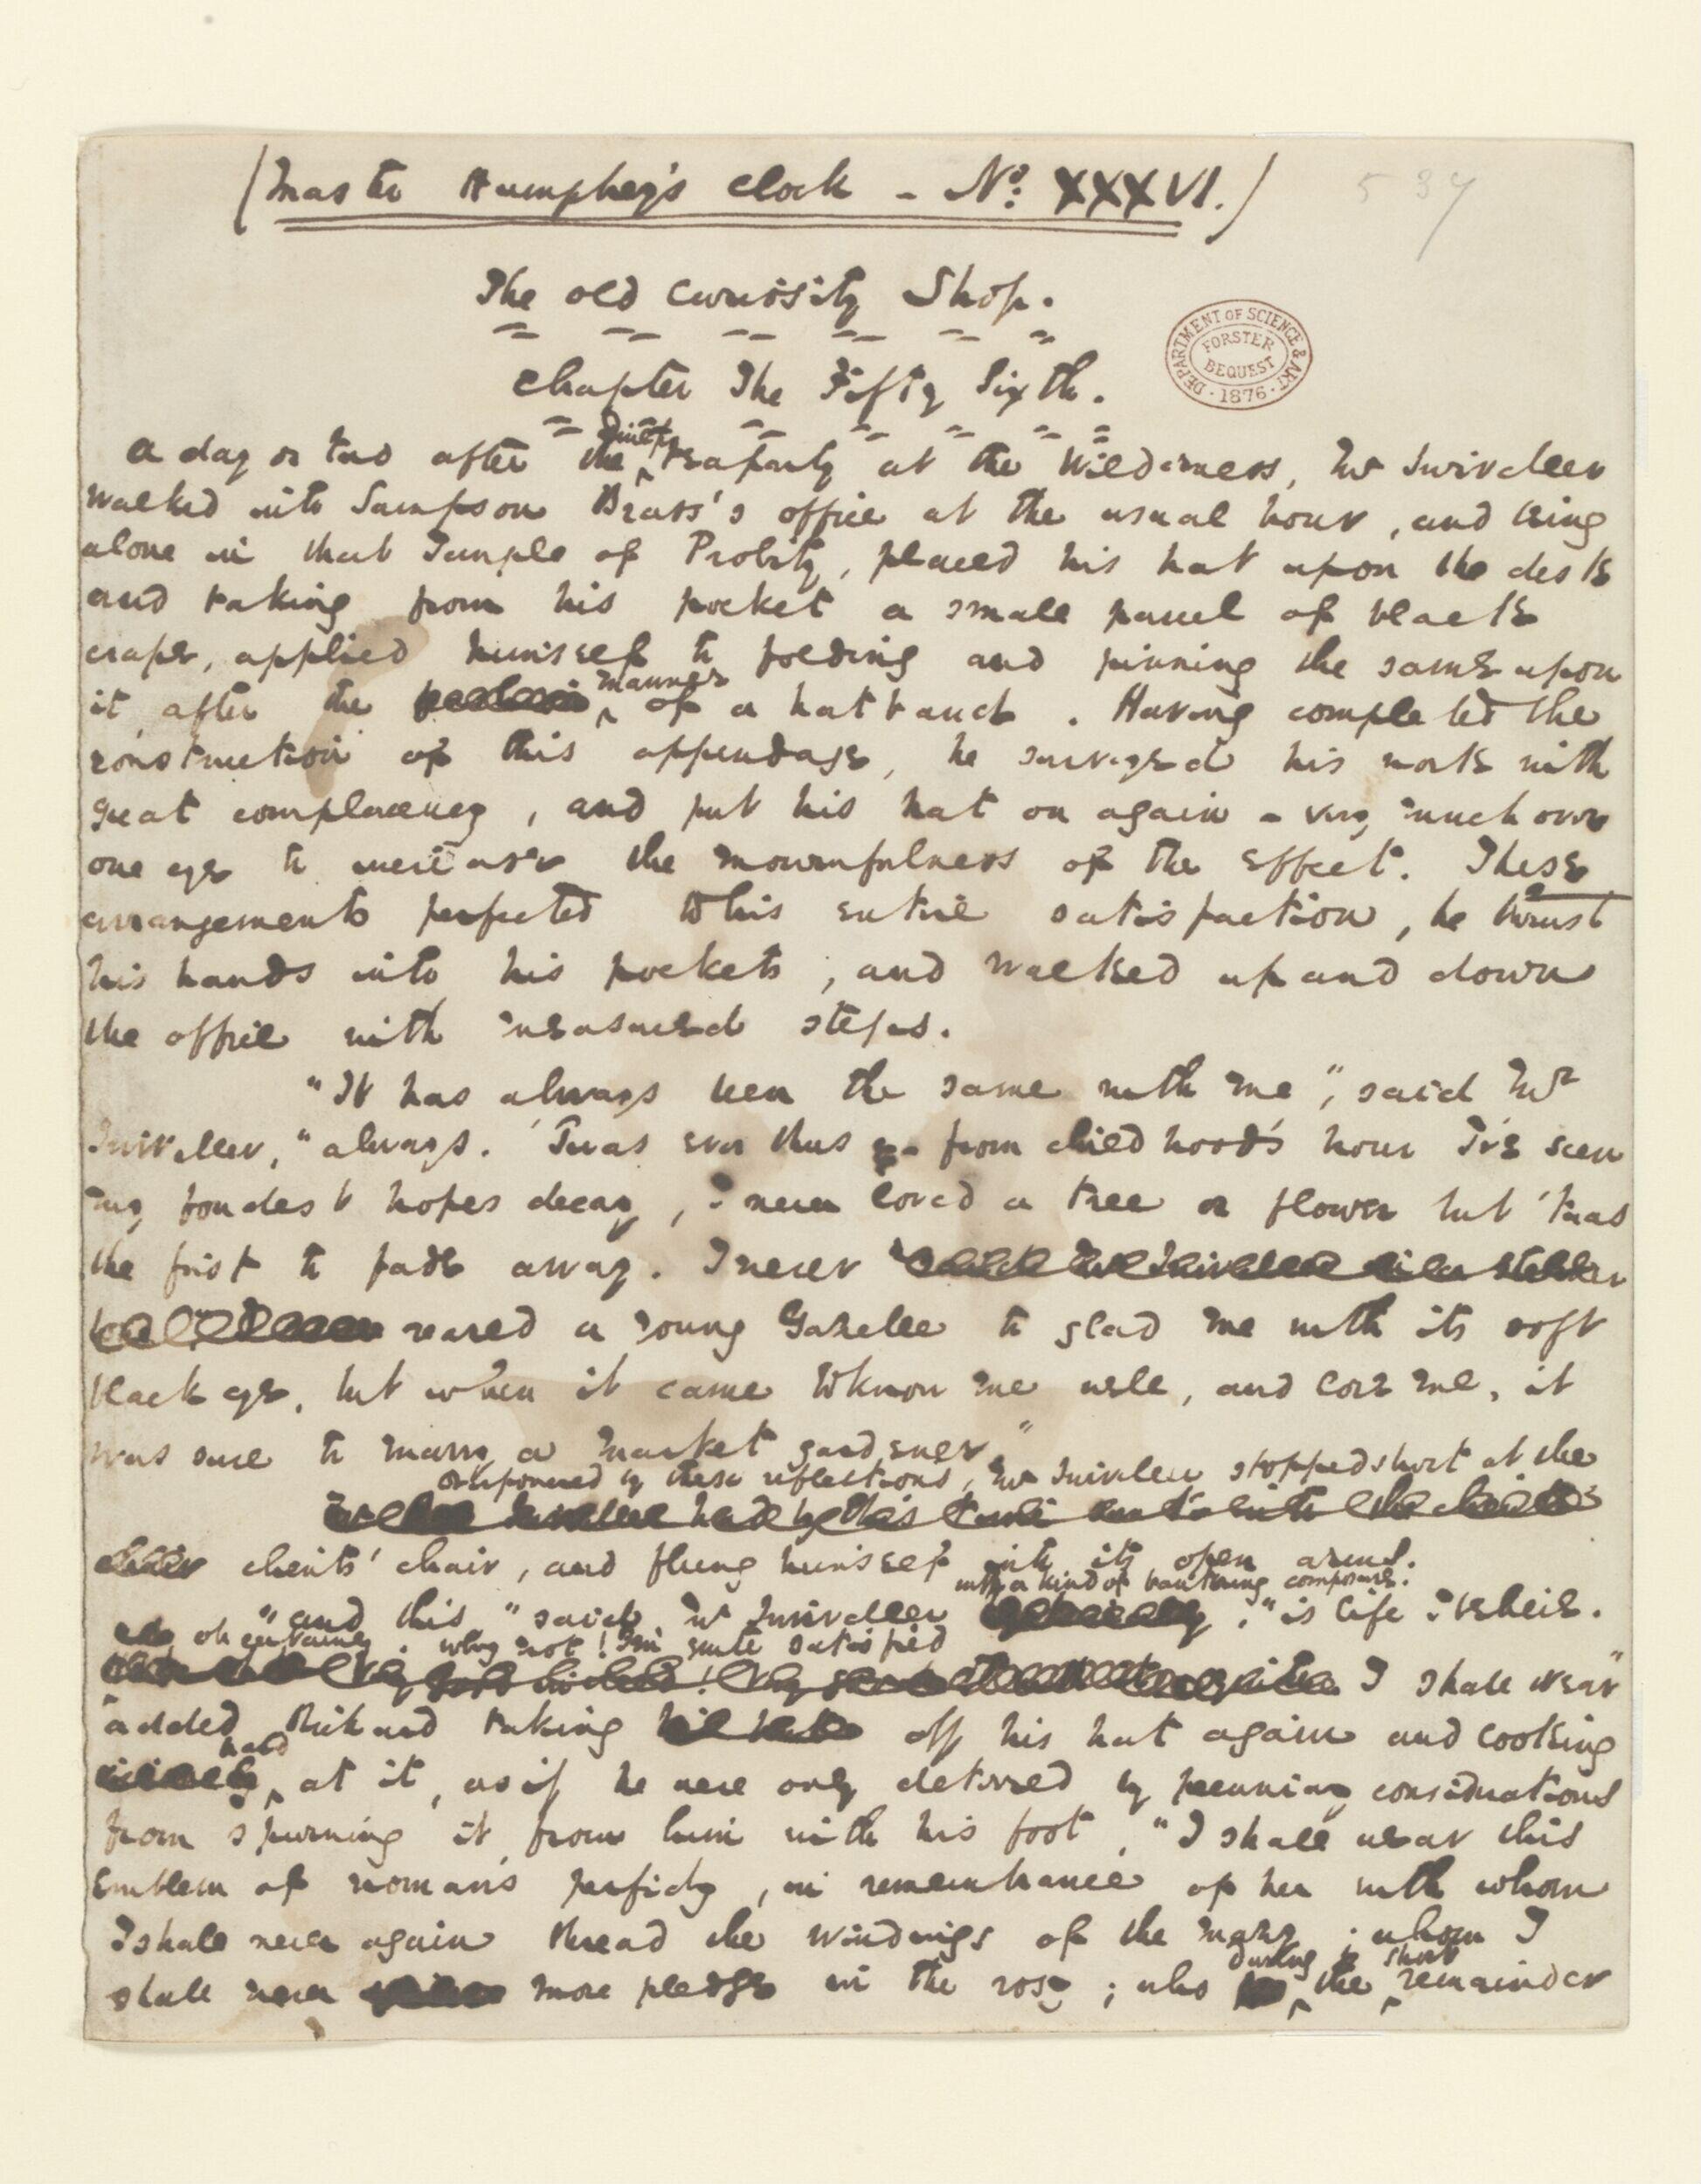 (Master Humphrey's Clock – No. XXXVI.)
5 37
The old Curiosity Shop.
Chapter The Fifty Sixth.
DEPARTMENT OF SCIENCE & ART · 1876 ·
FORSTER
BEQUEST
A day or two after the Quilp teaparty at the Wilderness, Mr Swiveller
walked into Sampson Brass's office at the usual hour, and being
alone in that Temple of Probity, placed his hat upon the desk
and taking from his pocket a small parcel of black
crape, applied himself to folding and pinning the same upon
it, after the manner of a hatband. Having completed the
construction of this appendage, he surveyed his work with
great complacency, and put his hat on again – very much over
one eye to increase the mournfulness of the effect. These
arrangements perfected to his entire satisfaction, he thrust
his hands into his pockets, and walked up and down
the office with measured steps.
"It has always been the same with me", said Mr
Swiveller, "always. 'Twas ever thus – from childhood's hour I've seen
my fondest hopes decay, I never loved a tree or flower but 'twas
the first to fade away. I never
reared a young Gazelle to glad me with its soft
black eye, but when it came to know me well, and love me, it
was sure to marry a market gardener."
Overpowered by these reflections, Mr Swiveller stopped short at the
clients' chair, and flung himself into its open arms.
"and this" said Mr Swiveller with a kind of bantering composure, "is life I believe.
oh certainly. why not! I'm quite satisfied I shall wear"
added Richard taking off his hat again and looking
hard at it, as if he were only deterred by pecuniary considerations
from spurning it from him with his foot, "I shall wear this
Emblem of woman's perfidy, in remembrance of her with whom
I shall never again thread the windings of the mazy; whom I
shall never more pledge in the rosy; who during the short remainder